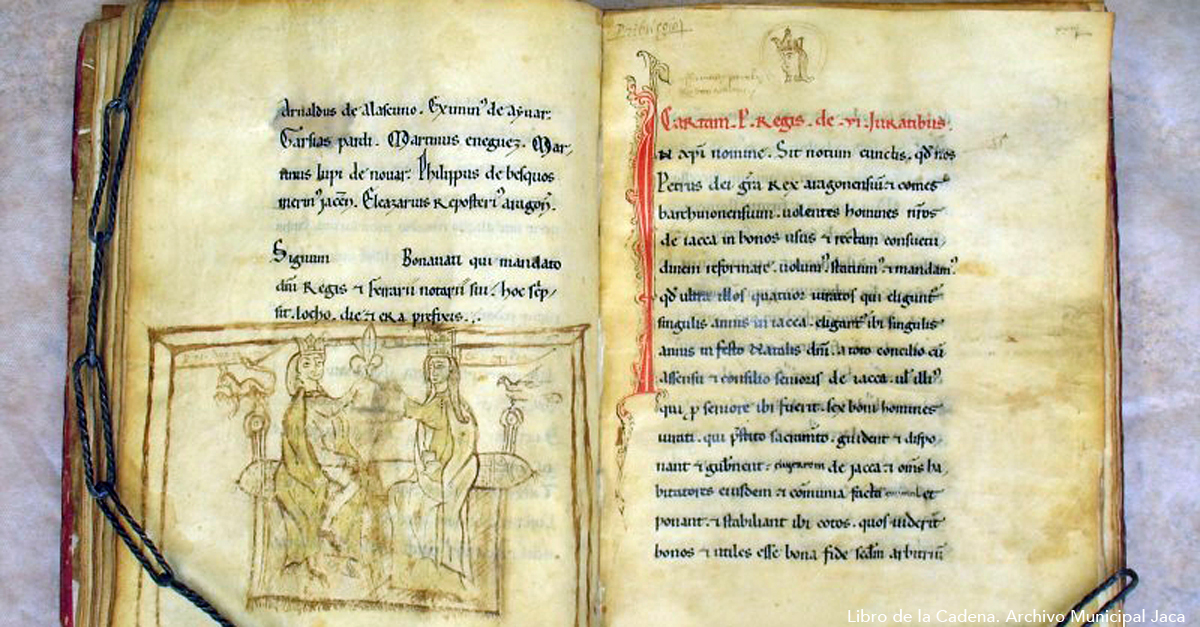 Arnaldus de alascuno. Eximinꝰ de aẏuar.
Garsias pardi. Martinus eneguez. Mar-
tinus lupi de nouar. Philippus de besquos
merinꝰ jaccēn. Eleazarius Repositeriꝰ aragoñ.
Signum Bonanati qui mandato
dñi Regis ⁊ ferrarii notarii sui. hoc sc͛p-
sit. locho. die ⁊ era prefixis.
Cartam. P. Regis. de. vi. Juratibus.
In xp̄i nomine. Sit notum cunctis. qd̓ nos
Petrus dei gr̄a Rex aragonensiū ⁊ comes
barchinonensium. uolentes homines nr̄os
de iacca in bonos usus ⁊ rectam consuetu-
dinem reformare. uolumꝰ. statuimꝰ ⁊ mandamꝰ.
qd̓ ultra illos quatuor iuratos qui eligunt᷑
singulis annis in iacca. eligant᷑ ibi singulis
annis in festo Natalis dñi. a toto concilio cū
assensu ⁊ consilio senioris de iacca. ul̓ illiꝰ
qui ꝓ seniore ibi fuerit. sex boni homines
iurati. qui p̄stito sacramēto. guident ⁊ dispo-
nant ⁊ gub̓nent. de jacca ⁊ om̄s ha-
bitatores eiusdem ⁊ cōmunia facta et
ponant. ⁊ stabiliant ibi cotos. quos uiderit᷑
bonos ⁊ utiles esse bona fide scd̄m arbitriū
Libro de la Cadena. Archivo Municipal Jaca